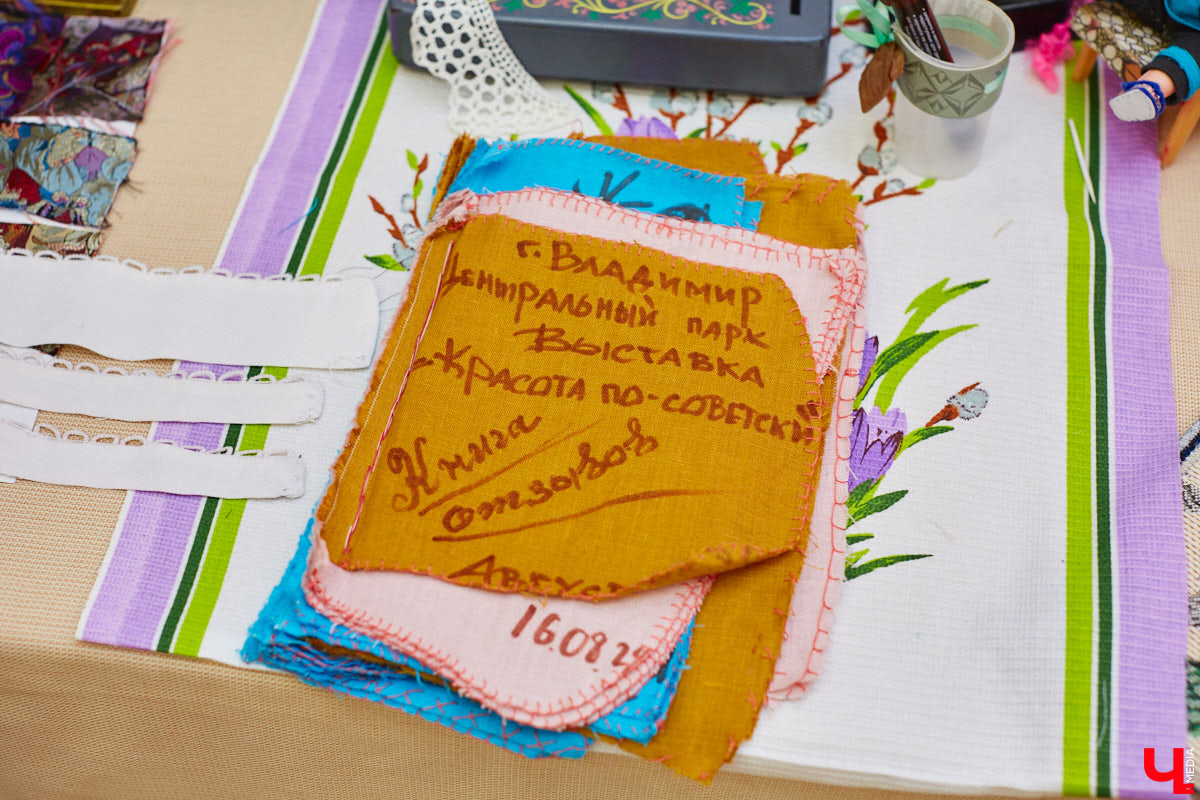 г. Владимир
Центральный парк
Выставка
"Красота по-советски"
Книга
отзывов
Август
16.08.2
Ч
MEDIA